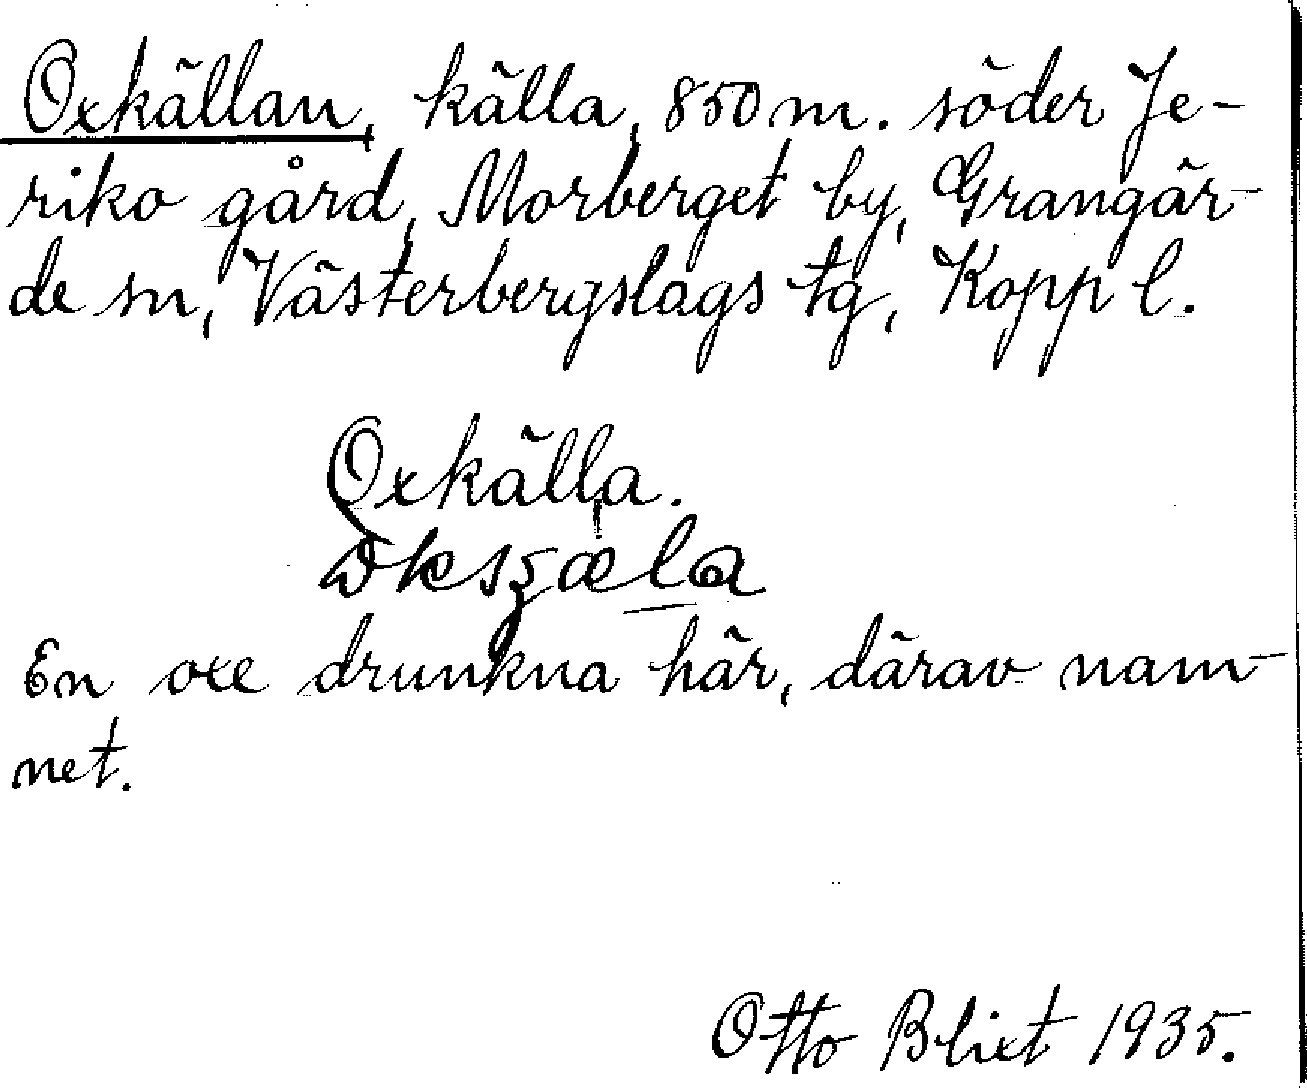 Oxkällan, källa, 850 m. söder Je-
riko gård, Morberget by, Grangär-
de sn, Västerbergslags tg, Kopp l.
Oxkälla.
En oxe drunkna här, därav nam-
net.
Otto Blixt 1935.